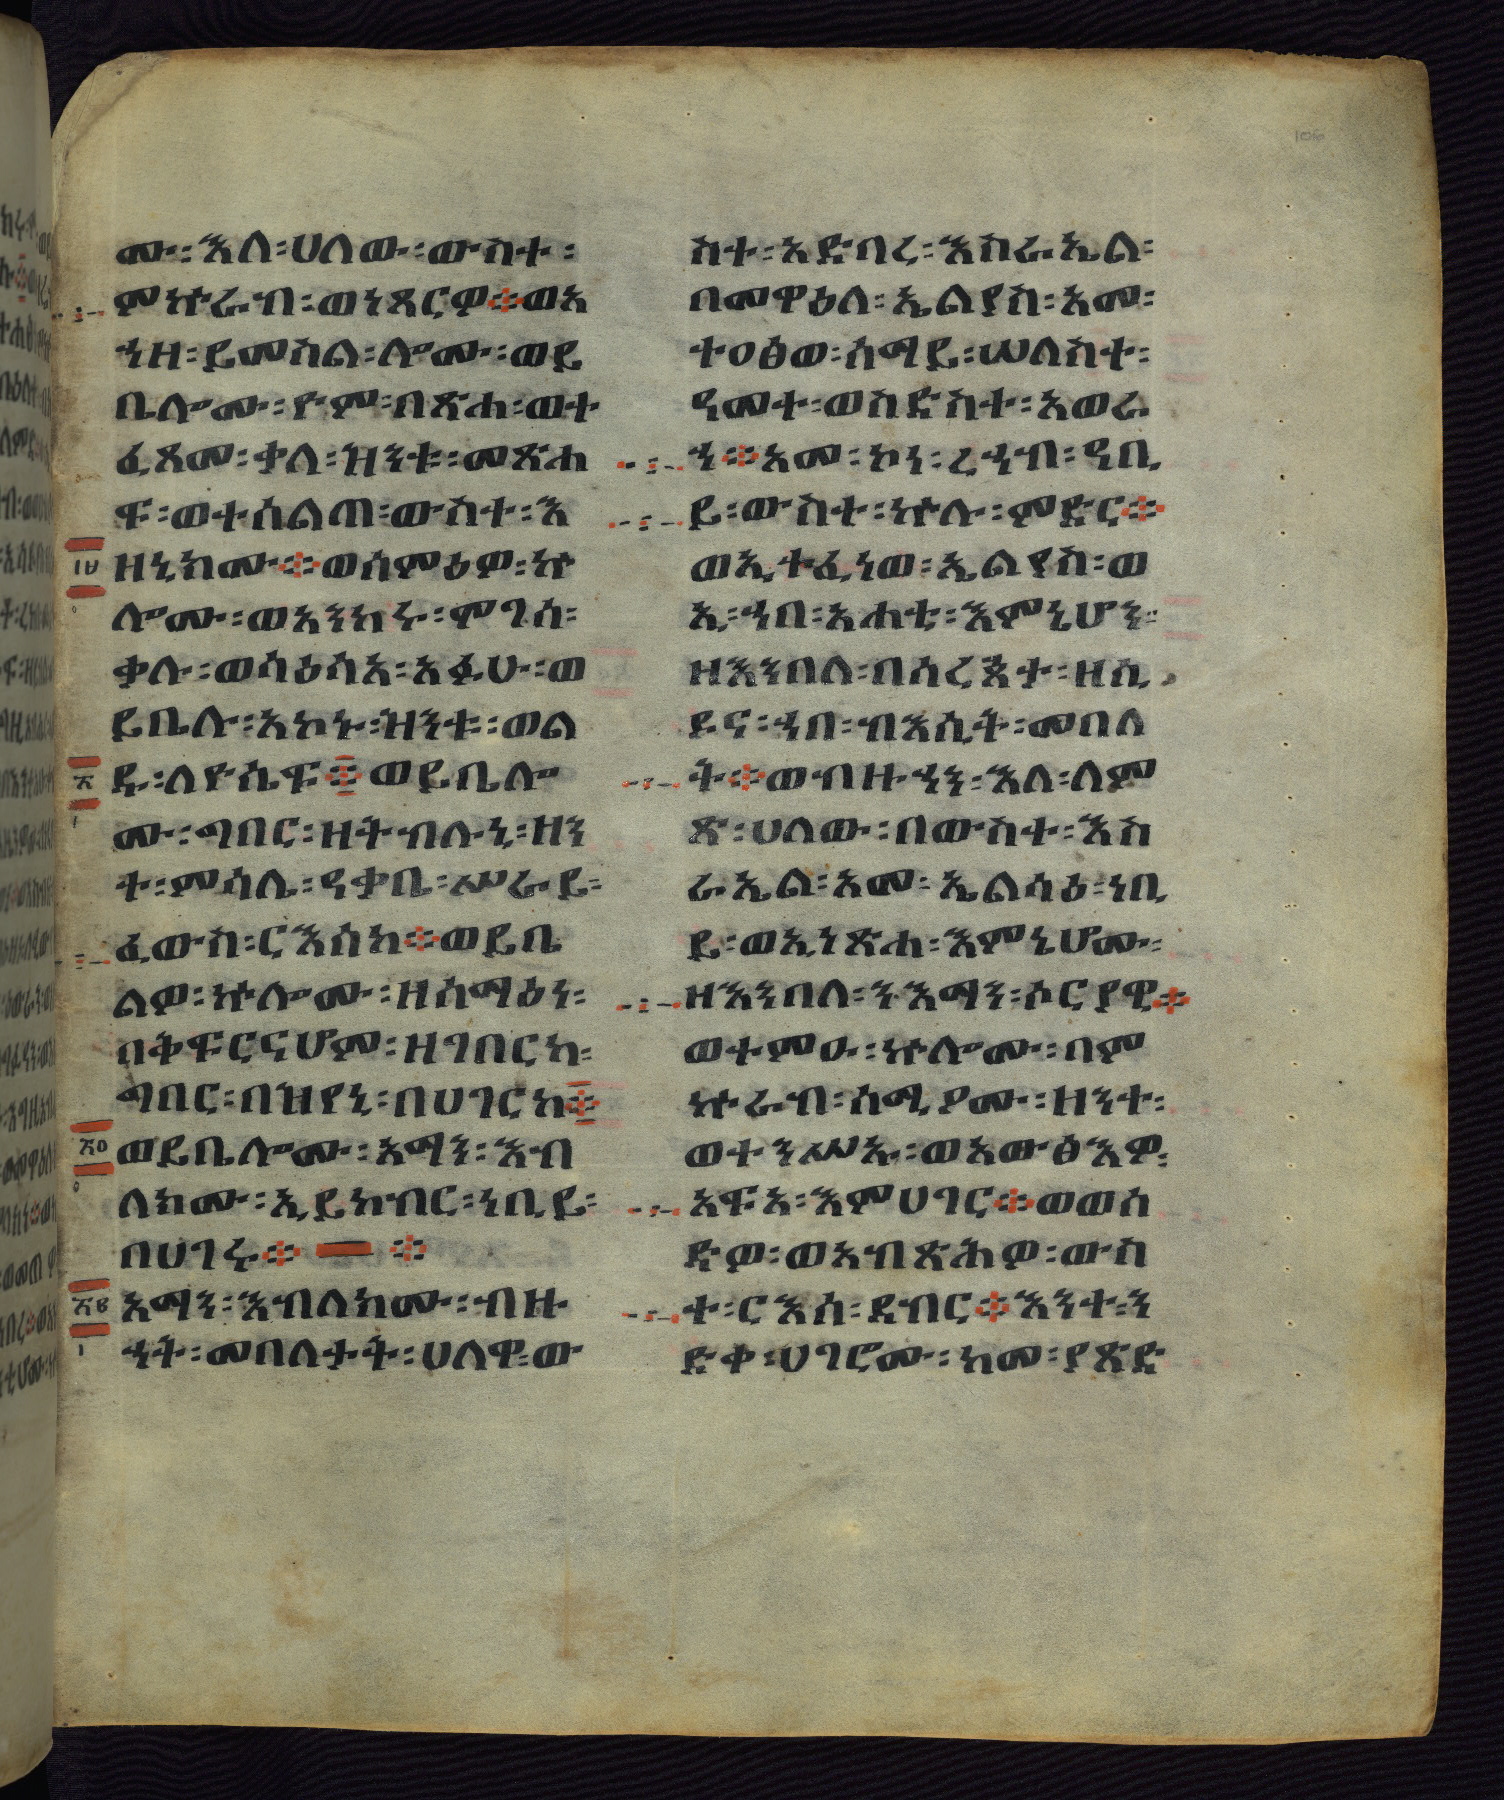 106
ሙ፡እለ፡ሀለው፡ውስተ፡
ምኵራብ፡ወነጸርዎ፨ወአ
ኀዘ፡ይመስል፡ሎሙ፡ወይ
ቤሎሙ፡ዮም፡በጽሐ፡ወተ
ፈጸመ፡ቃለ፡ዝንቱ፡መጽሐ
ፍ፡ወተሰልጠ፡ውስተ፡እ
ዘኒክሙ፨ወሰምዕዎ፡ኵ
ሎሙ፡ወአንከሩ፡ሞገሰ፡
ቃሉ፡ወሣዕሣአ፡አፉሁ፡ወ
ይቤሉ፡አኮኑ፡ዝንቱ፡ወል
ዱ፡ለዮሴፍ፨ወይቤሎ
ሙ፡ግበር፡ዘትብሉኒ፡ዘን
ተ፡ምሳሌ፡ዓቃቤ፡ሥራይ፡
ፈውስ፡ርእሰከ፨ወይቤ
ልዎ፡ኵሎሙ፡ዘሰማዕነ፡
በቅፍርናሆም፡ዘገበርከ፡
ግበር፡በዝየኒ፡በሀገርከ፨
ወይቤሎሙ፡አማን፡እብ
ለክሙ፡ኢይከብር፡ነቢይ፡
በሀገሩ፨ ፨
አማን፡እብለክሙ፡ብዙ
ኃት፡መበለታት፡ሀለዋ፡ው
ስተ፡አድባረ፡እስራኤል፡
በመዋዕለ፡ኤልያስ፡አመ፡
ተዐፅወ፡ሰማይ፡ሠለስተ፡
ዓመተ፡ወስድስተ፡አውራ
ኀ፨አመ፡ኮነ፡ረኃብ፡ዓቢ
ይ፡ውስተ፡ኵሉ፡ምድር፨
ወኢተፈነወ፡ኤልያስ፡ወ
ኢ፡ኀበ፡አሐቲ፡እምኔሆን፡
ዘእንበለ፡በሰረጵተ፡ዘሲ
ዶና፡ኀበ፡ብእሲት፡መበለ
ት፨ወብዙኃን፡እለ፡ለም
ጽ፡ሀለው፡በውስተ፡እስ
ራኤል፡አመ፡ኤልሳዕ፡ነቢ
ይ፡ወኢነጽሐ፡እምኔሆሙ፡
ዘእንበለ፡ንእማን፡ሶርያዊ፨
ወተምዑ፡ኵሎሙ፡በም
ኵራብ፡ሰሚዖሙ፡ዘንተ፡
ወተንሥኡ፡ወአውፅእዎ፡
አፍአ፡እምሀገር፨ወወሰ
ድዎ፡ወአብጽሕዎ፡ውስ
ተ፡ርእሰ፡ደብር፨እንተ፡ን
ድቀ፡ሀገሮሙ፡ከመ፡ያጽድ
፲፱
፳
፳፩